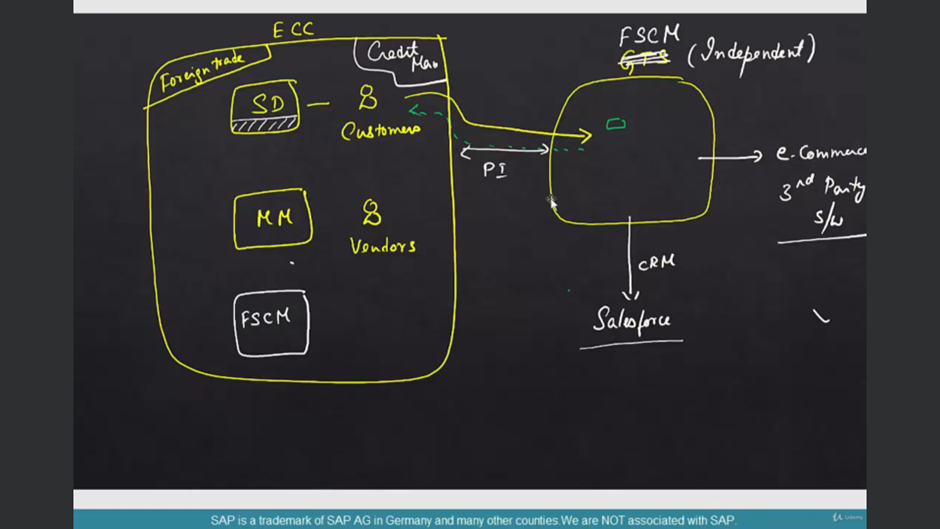 ECC
Foreign trade
Credit
Man
SD
Customers
MM
Vendors
FSCM
PI
FSCM
GTS
(Independent)
e-Commerce
3rd Party
S/W
CRM
Salesforce
SAP is a trademark of SAP AG in Germany and many other counties.We are NOT associated with SAP.
Udemy